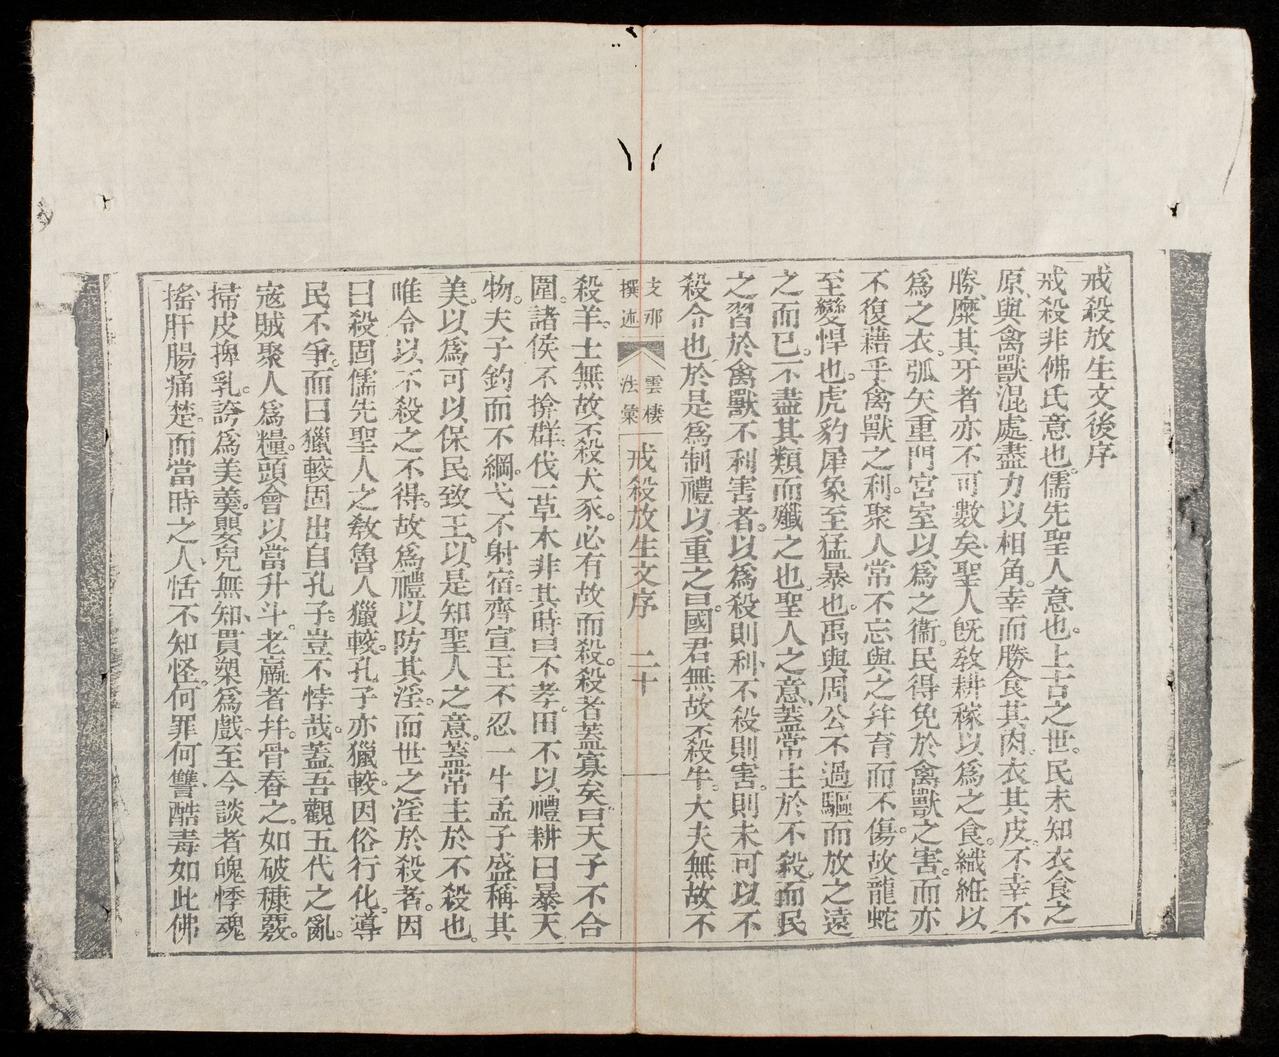 戒殺放生文後序
戒殺非佛氏意也。儒先聖人意也。上古之世。民未知衣食之
原、與禽獸混處盡力以相角。幸而勝食其肉、衣其皮、不幸不
勝、糜其牙者亦不可數矣、聖人旣敎耕稼以爲之食。織絍以
爲之衣。弧矢重門宮室以爲之衞。民得免於禽獸之害。而亦
不復藉乎禽獸之利。聚人常不忘與之幷育而不傷。故龍蛇
至變悍也。虎豹犀象至猛暴也。禹與周公不過驅而放之遠
之而已。不盡其類而殲之也。聖人之意、蓋常主於不殺、而民
之習於禽獸不利害者。以爲殺則利、不殺則害。則未可以不
殺令也。於是爲制禮以重之曰。國君無故不殺牛。大夫無故不
支那撰述
雲棲法彙
戒殺放生文序
二十
殺羊。士無故不殺犬豕。必有故而殺。殺者蓋寡矣。曰天子不合
圍。諸侯不揜群、伐一草木非其時曰不孝。田不以禮耕曰暴天
物。夫子釣而不綱。弋不射宿。齊宣王不忍一牛孟子盛稱其
美。以爲可以保民致王、以是知聖人之意。蓋常主於不殺也。
唯令以不殺之不得。故爲禮以防其淫。而世之淫於殺者。因
曰殺固儒先聖人之敎魯人獵較。孔子亦獵較。因俗行化。導
民不爭。而曰獵較固出自孔子。豈不悖哉。蓋吾觀五代之亂。
寇賊聚人爲糧。頭會以當升斗。老羸者幷骨舂之。如破穅覈。
掃皮掉乳。誇爲美羹。嬰兒無知、貫槊爲戲、至今談者魄悸魂
搖、肝腸痛楚。而當時之人、恬不知怪。何罪何讐、酷毒如此佛